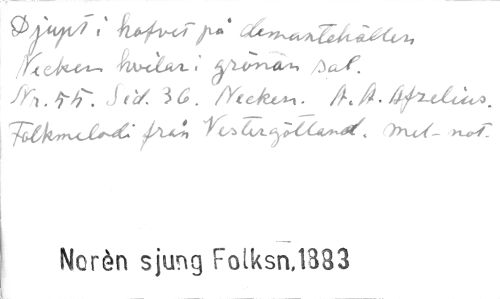 Djupt i hafvet på demantehällen
Necken hvilar i grönan sal.
Nr. 55. Sid. 36. Necken. A. A. Afzelius.
Folkmelodi från Vestergötland. mel-not.
Norèn sjung Folksn,1883